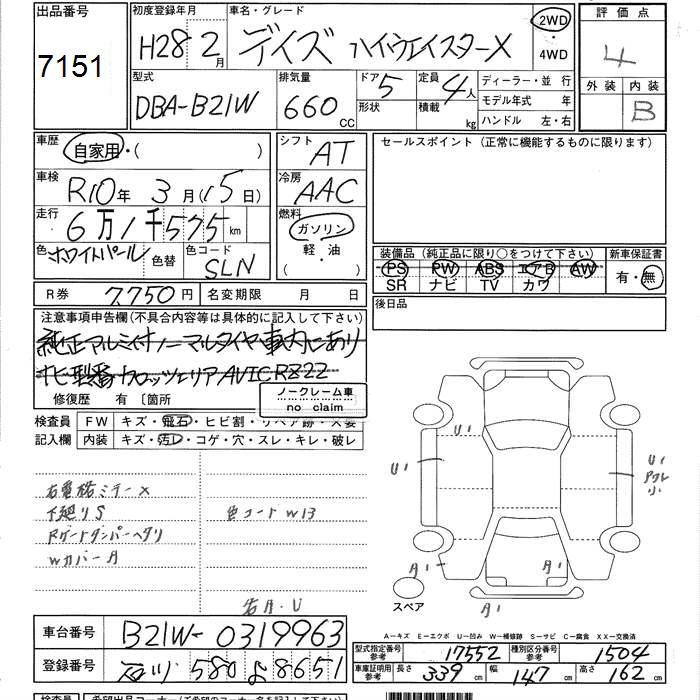 出品番号
7151
初度登録年月
H28 2月
車名・グレード
デイズ ハイウェイスターX
2WD
・
4WD
評価点
4
外装 内装
B
型式
DBA-B21W
排気量
660 CC
ドア 5
形状
定員 4人
積載 kg
ディーラー・並 行
モデル年式 年
ハンドル 左・右
車歴
自家用・( )
シフト
AT
セールスポイント (正常に機能するものに限ります)
車検
R10年 3月(15日)
冷房
AAC
走行
6万1千575km
燃料
ガソリン
・
軽・油
( )
色 ホワイトパール
色替
色コード
SLN
装備品 (純正品に限り○をつけて下さい)
新車保証書
PS PW ABS エアB AW
SR ナビ TV カワ
有・無
R券 7,750円
名変期限 月 日
後日品
注意事項申告欄(不具合内容等は具体的に記入して下さい)
純正アルミ付ノーマルタイヤ車内にあり
ナビ型番 カロッツェリア AVIC RZ22
修復歴 有 〔箇所
ノークレーム車
no claim
検査員
記入欄
FW キズ・飛石・ヒビ割・リペア跡・
内装 キズ・汚レ・コゲ・穴・スレ・キレ・破レ
下廻りS
Rゲートダンパーヘタリ
Wカバー
色コード W13
U'
U'
U'
スペア
A-キズ E-エクボ U-凹み W-補修跡 S-サビ C-腐食 XX-交換済
車台番号
B21W-0319963
登録番号
石川 580 8651
型式指定番号
参考
17552
種別区分番号
参考
1504
車庫証明用
参考
長さ 339cm
幅 147cm
高さ 162cm